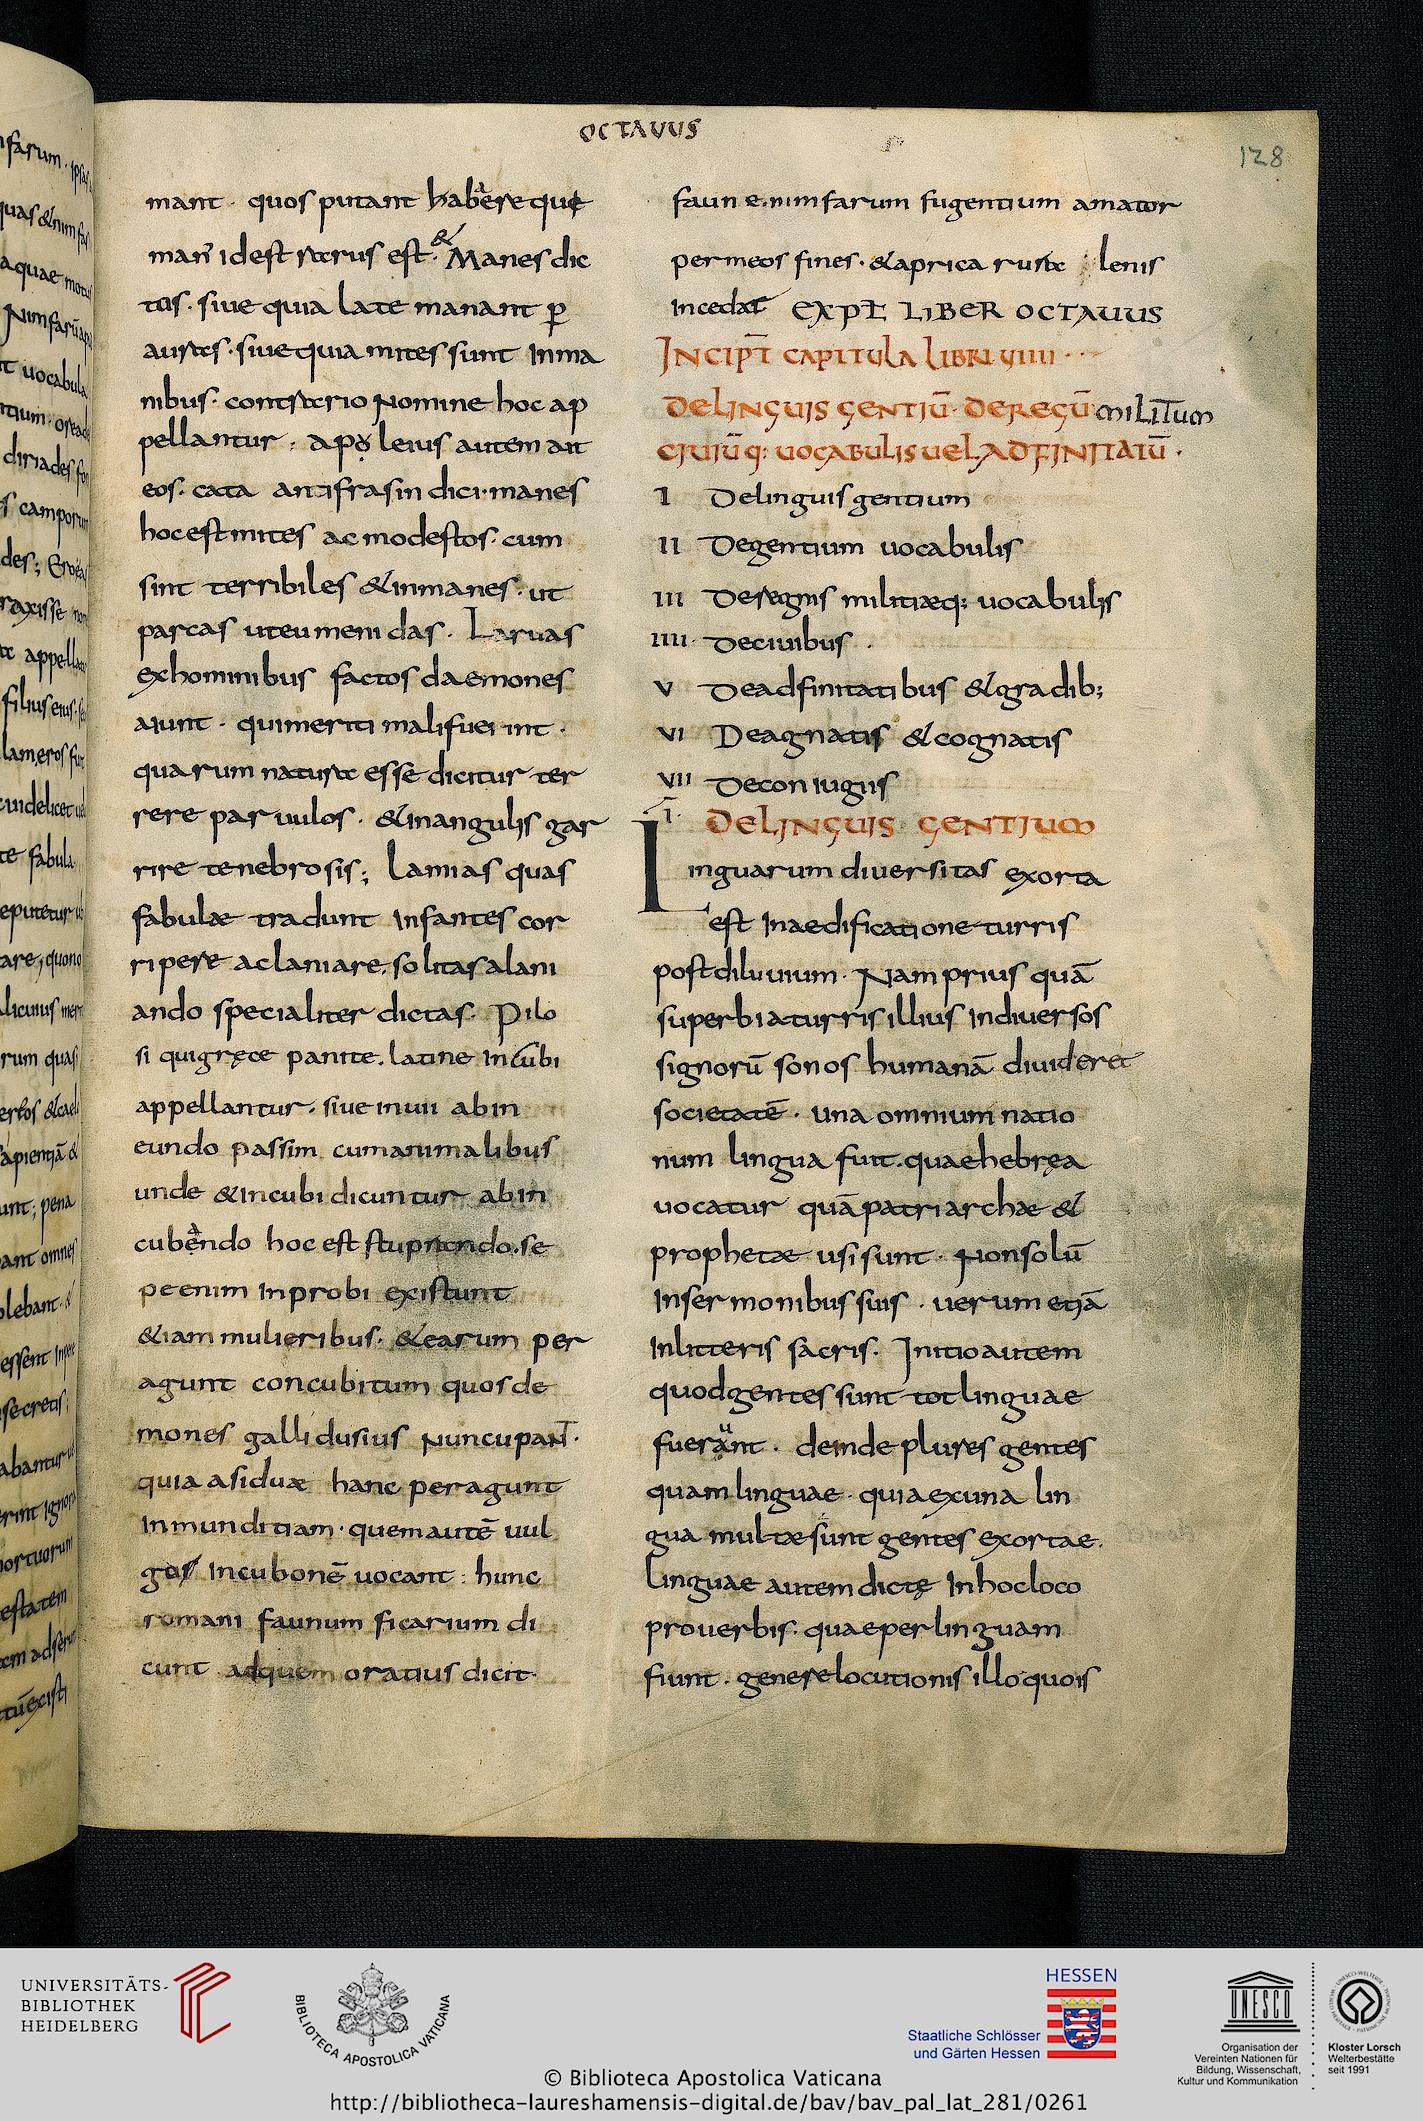 OCTAUUS
128
mant · quos putant habere que
man̄ id est ratrus est · & Manes dic
tos · siue quia late manant p̲
auras · siue quia mites sunt Inma
nibus · contrario Nomine hoc ap
pellantur · apoleius autem ait
eos · cata antifrasin dici · manes
hoc est mites ac modestos · cum
sint terribiles & inmanes · ut
parcas ut eumenidas · Laruas
ex hominibus factos daemones
aiunt · qui meriti mali fuerint ·
quarum natura esse dicitur ter
rere paruulos · & in angulis gar
rire tenebrosis; lamias quas
fabulae tradunt Infantes cor
ripere ac laniare, solitas a lani
ando specialiter dictas · Pilo
si qui gręce panite, latine Incubi
appellantur · siue inuii ab in
eundo passim cum animalibus
unde & Incubi dicuntur ab in
cubando hoc est stuprando · se
pe enim Inprobi existunt
&iam mulieribus · & earum per
agunt concubitum quos de
mones galli dusius Nuncupant ·
quia asiduae hanc peragunt
Inmunditiam · quem autē uul
gos Incubonē uocant : hunc
romani faunum ficarium di
cunt adquem oratius dicit ·
faune nimfarum fugentium amator
per meos fines · & aprica rura lenis
Incedat EXPL LIBER OCTAUUS
INCIPT̄ CAPITULA LIBRI UIIII
DE LINGUIS GENTIŪ · DE REGŪ MILITUM
CIUIŪ Q: UOCABULIS UEL ADFINITATŪ ·
I De linguis gentium
II De gentium uocabulis
III De regnis militiaeq; uocabulis
IIII De ciuibus ·
V De adfinitatibus & gradib;
VI De agnatis & cognatis
VII De coniugiis
I · DE LINGUIS GENTIUM
Linguarum diuersitas exorta
est In aedificatione turris
post diluuium · Nam prius quā
superbia turris illius In diuersos
signorū sonos humanā diuideret
societatē · una omnium natio
num lingua fuit · quae hebręa
uocatur quā patriarchae &
prophetae usi sunt · Non solū
In sermonibus suis · uerum etiā
In litteris sacris · Initio autem
quod gentes sunt tot linguae
fuerunt · deinde plures gentes
quam linguae · quia ex una lin
gua multae sunt gentes exortae ·
Linguae autem dictę In hoc loco
prouerbis · quae per linguam
fiunt · genere locutionis illo quois
UNIVERSITÄTS-
BIBLIOTHEK
HEIDELBERG
BIBLIOTECA APOSTOLICA VATICANA
HESSEN
Staatliche Schlösser
und Gärten Hessen
UNESCO
Organisation der
Vereinten Nationen für
Bildung, Wissenschaft,
Kultur und Kommunikation
Kloster Lorsch
Welterbestätte
seit 1991
© Biblioteca Apostolica Vaticana
http://bibliotheca-laureshamensis-digital.de/bav/bav_pal_lat_281/0261